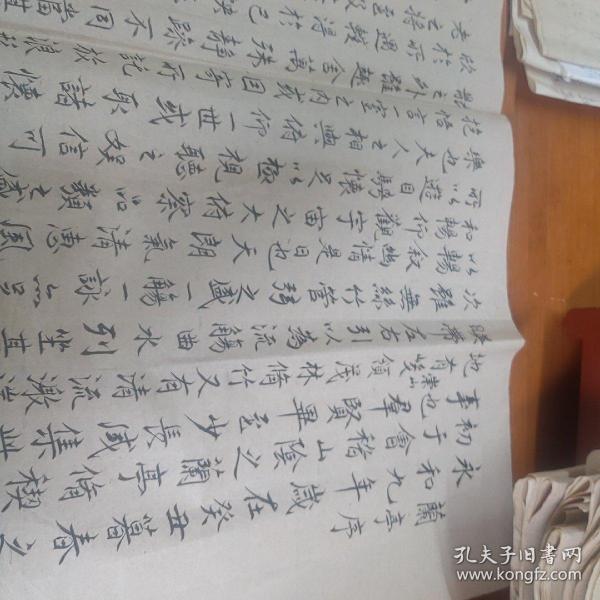 蘭亭序
永和九年歲在癸丑暮春之
初于會稽山陰之蘭亭脩禊
事也羣賢畢至少長咸集此
地有崇山峻領茂林脩竹又有清流激湍
映帶左右引以為流觴曲水列坐其
次雖無絲竹管弦之盛一觴一詠亦足
以暢敘幽情是日也天朗氣清惠風
和暢仰觀宇宙之大俯察品類之盛
所以遊目騁懷足以極視聽之娛信可
樂也夫人之相與俯仰一世或取諸懷
抱悟言一室之內或因寄所託放浪形
骸之外雖趣舍萬殊靜躁不同當其
欣於所遇暫得於己快
老之將至
孔夫子旧书网
www.kongfz.com